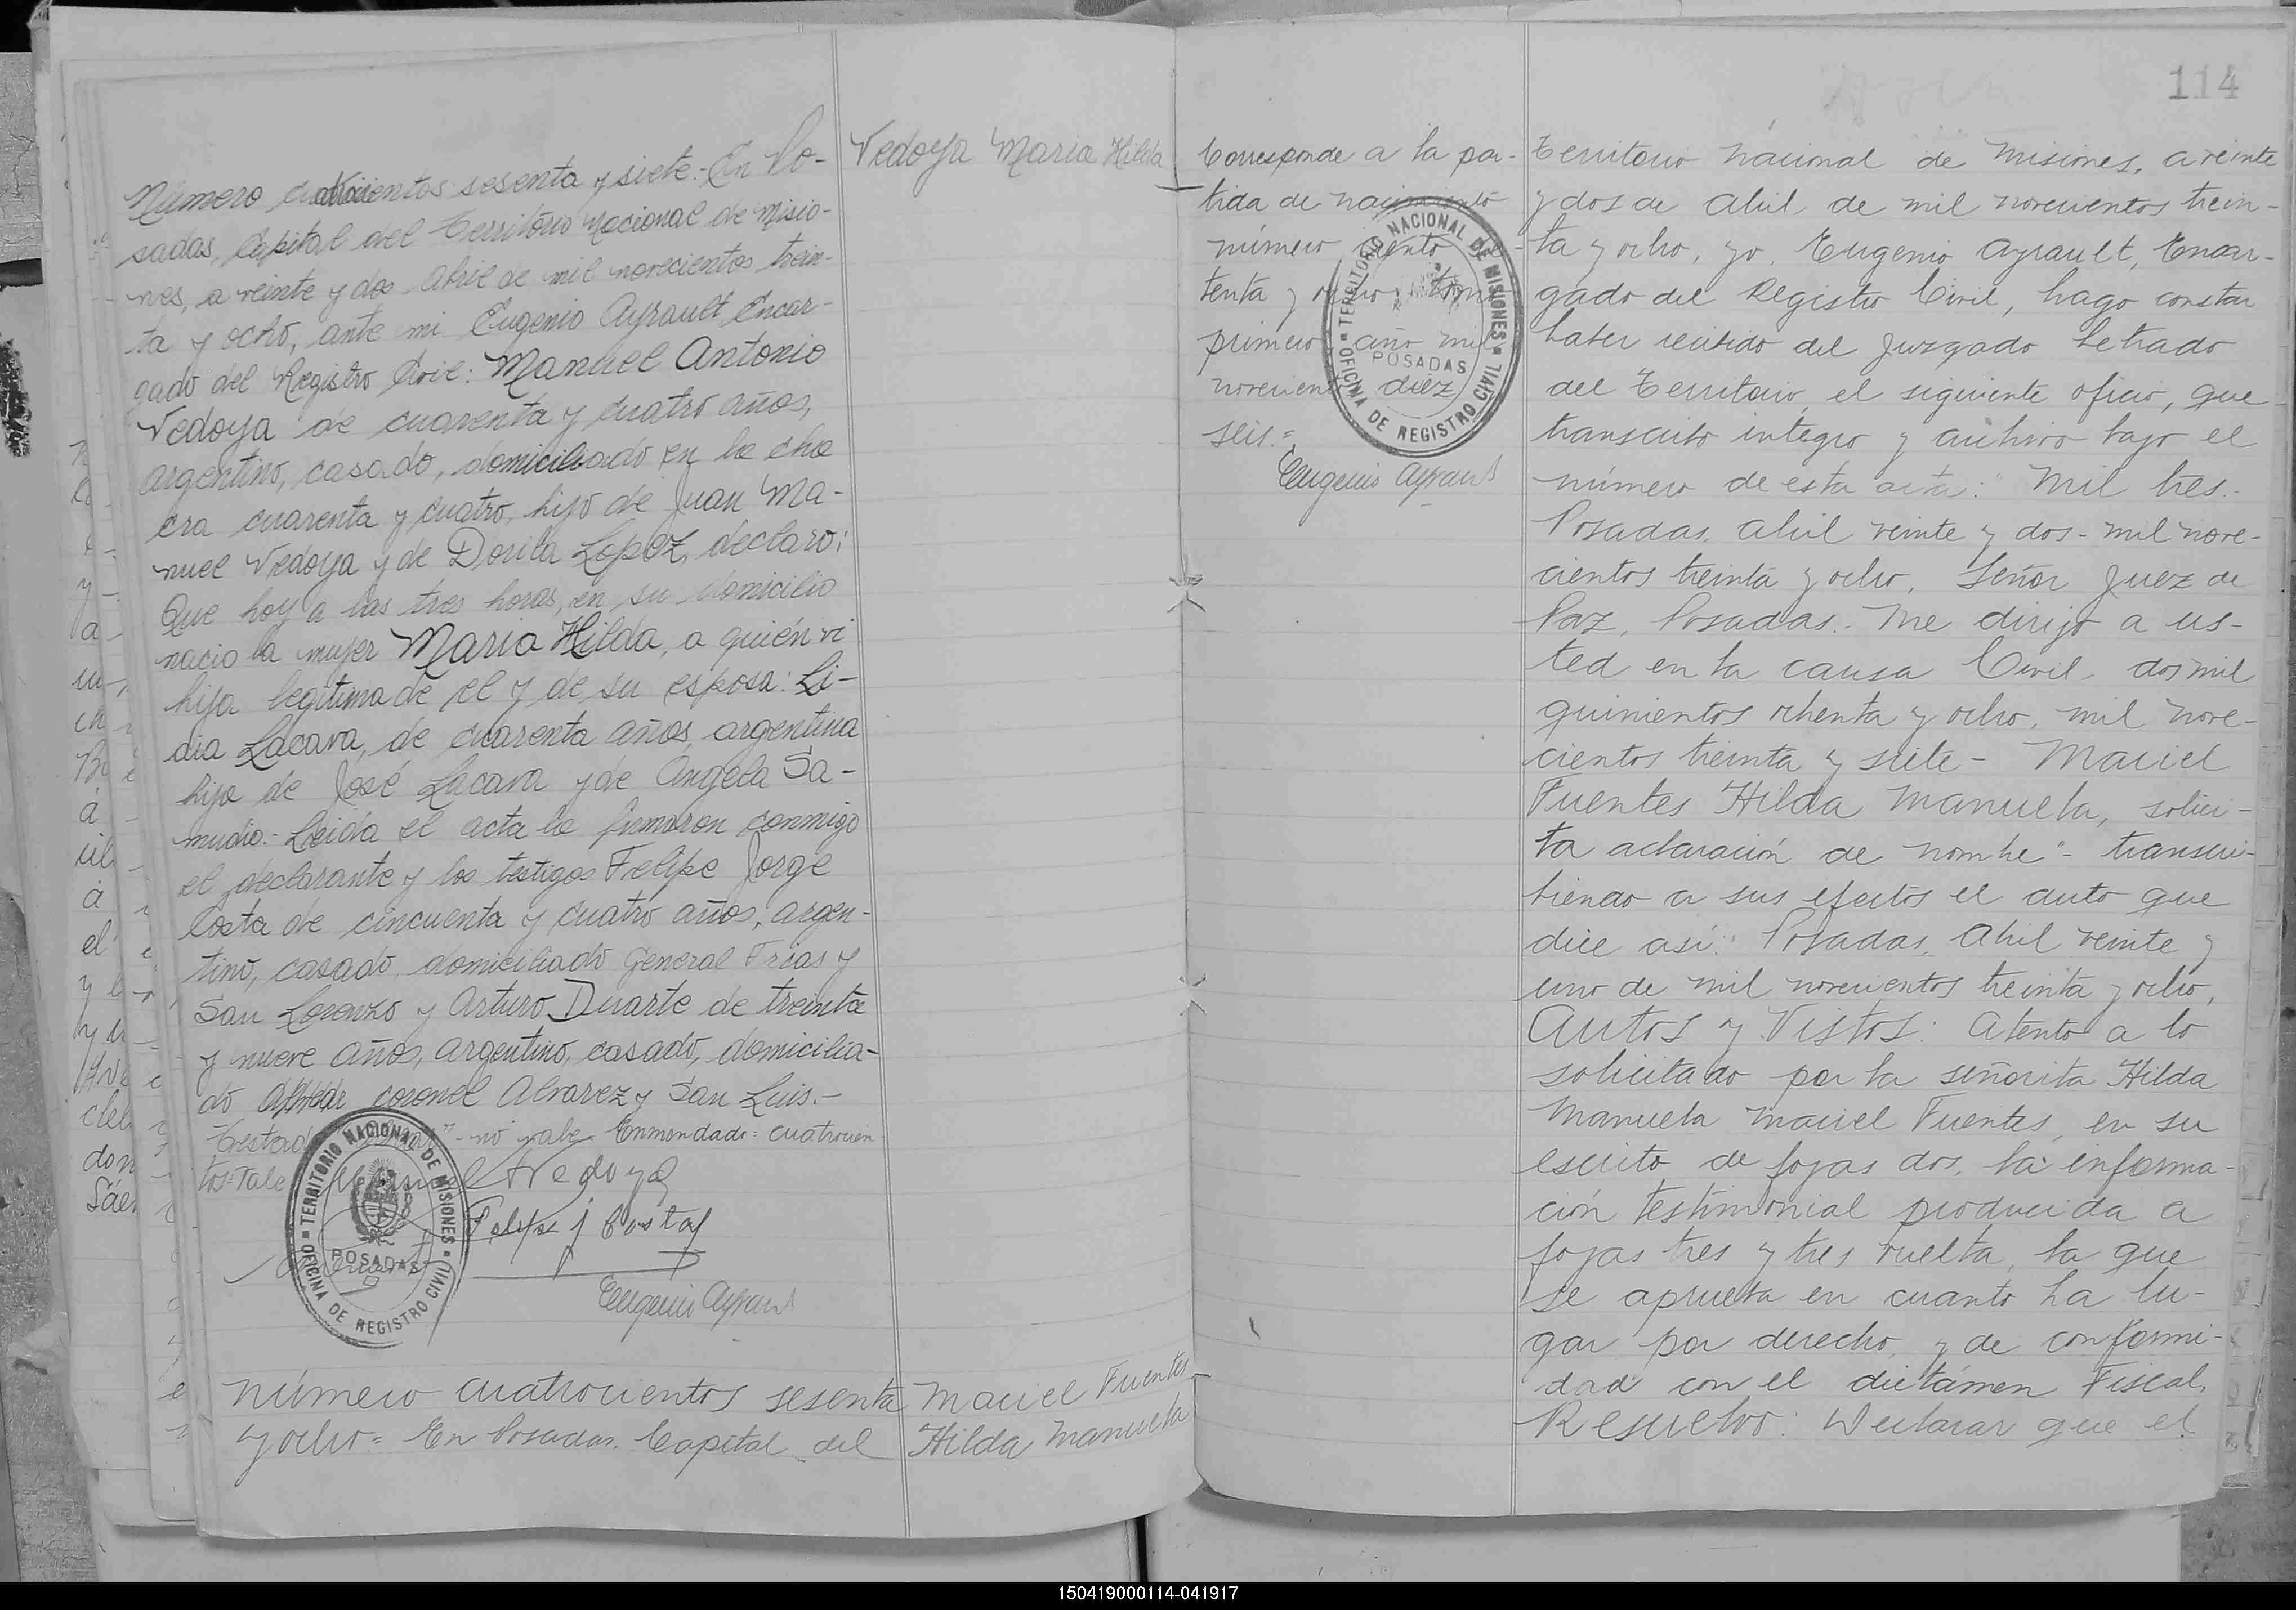 Número cuatrocientos sesenta y siete:- En Po-
sadas, Capital del Territorio Nacional de Misio-
nes, a veinte y dos Abril de mil novecientos trein-
ta y ocho, ante mi Eugenio Ayrault Encar-
gado del Registro Civil: Manuel Antonio
Vedoya de cuarenta y cuatro años,
argentino, casado, domiciliado en la cha
cra cuarenta y cuatro, hijo de Juan Ma-
nuel Vedoya y de Dorila Lopez, declaro:
Que hoy a las tres horas, en su domicilio
nacio la mujer Maria Hilda, a quién vi
hija legitima de el y de su esposa: Li-
dia Lacava, de cuarenta años, argentina
hija de José Lacava y de Angela Sa-
mudio:- Leida el acta la firmaron conmigo
el declarante y los testigos Felipe Jorge
Costa de cincuenta y cuatro años, argen-
tino, casado, domiciliado General Frias y
San Lorenzo y Arturo Duarte de treinta
y nueve años, argentino, casado, domicilia-
do coronel Alvarez y San Luis.-
Testado no vale. Enmendado: cuatrocien
tos=Vale
Manuel A Vedoya
Felipe J Costa
Eugenio Ayrault
TERRITORIO NACIONAL DE MISIONES
POSADAS
OFICINA DE REGISTRO CIVIL
Vedoya Maria Hilda
número cuatrocientos sesenta
y ocho= En Posadas. Capital del
Maciel Fuentes
Hilda Manuela
114
Corresponde a la par-
tida de nacimiento
número ciento se-
tenta y ocho tomo
primero año mil
novecient diez
seis.=
Eugenio Ayrault
TERRITORIO NACIONAL DE MISIONES
POSADAS
OFICINA DE REGISTRO CIVIL
Territorio Nacional de Misiones, a veinte
y dos de Abril de mil novecientos trein-
ta y ocho, yo, Eugenio Ayrault, Encar-
gado del Registro Civil, hago constar
haber recibido del Juzgado Letrado
del Territorio el siguiente oficio, que
transcribo integro y archivo bajo el
número de esta acta: "Mil tres.
Posadas, Abril veinte y dos- mil nove-
cientos treinta y ocho. Señor Juez de
Paz, Posadas.- Me dirijo a us-
ted en la causa Civil dos mil
quinientos ochenta y ocho, mil nove-
cientos treinta y siete - Maciel
Fuentes Hilda Manuela, solici-
ta aclaración de nombre"- transcri-
biendo a sus efectos el auto que
dice asi: "Posadas, Abril veinte y
uno de mil novecientos treinta y ocho,
Autos y Vistos: Atento a lo
solicitado por la señorita Hilda
Manuela Maciel Fuentes, en su
escrito de fojas dos, la informa-
ción testimonial producida a
fojas tres y tres vuelta, la que
se aprueba en cuanto ha lu-
gar por derecho, y de conformi-
dad con el dictámen Fiscal,
Resuelvo: Declarar que el
150419000114-041917